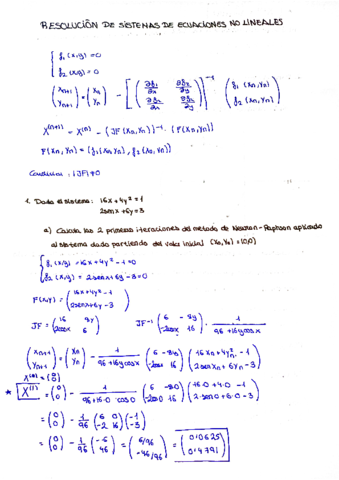 RESOLUCIÓN DE SISTEMAS DE ECUACIONES NO LINEALES
{ f₁(x,y)=0
f₂(x,y)=0
(xₙ₊₁ / yₙ₊₁) = (xₙ / yₙ) - [(∂f₁/∂x ∂f₁/∂y / ∂f₂/∂x ∂f₂/∂y)]⁻¹ (f₁(xₙ,yₙ) / f₂(xₙ,yₙ))
X⁽ⁿ⁺¹⁾ = X⁽ⁿ⁾ - (JF(xₙ,yₙ))⁻¹ · (F(xₙ,yₙ))
F(xₙ,yₙ) = (f₁(xₙ,yₙ), f₂(xₙ,yₙ))
|JF|≠0
1. Dado el sistema: 16x+4y²=1
2senx+6y=3
a) Calcula las 2 primeras iteraciones del método de Newton-Raphson aplicado
al sistema dado partiendo del valor inicial (x₀,y₀)=(0,0)
{ f₁(x,y)=16x+4y²-1=0
f₂(x,y)=2senx+6y-3=0
F(x,y) = (16x+4y²-1 / 2senx+6y-3)
JF = (16 8y / 2cosx 6) JF⁻¹ (6 -8y / -2cosx 16) · 1/(96+16ycosx)
(xₙ₊₁ / yₙ₊₁) = (xₙ / yₙ) - 1/(96+16ycosx) (6 -8y / -2cosx 16) (16xₙ+4yₙ²-1 / 2senxₙ+6yₙ-3)
X⁽⁰⁾ = (0 / 0)
* X⁽¹⁾ = (0 / 0) - 1/(96+16·0·cos0) (6 -8·0 / -2cos0 16) (16·0+4·0-1 / 2sen0+6·0-3)
= (0 / 0) - 1/96 (6 0 / -2 16) (-1 / -3)
= (0 / 0) - 1/96 (-6 / -46) = (6/96 / -46/96) = (0'0625 / 0'4791)